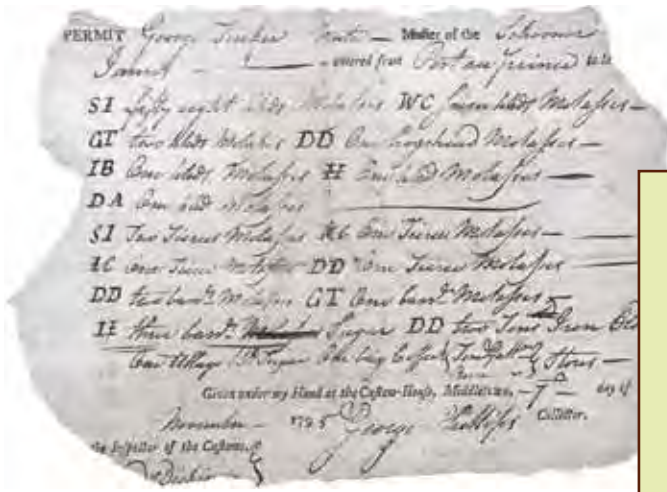 PERMIT George Tucker — Master of the Schooner
Janet — entered from Port au Prince
SI Fifty eight Hhds Molasses WC Seven hhds Molasses —
GT two hhds Molasses DD One hogshead Molasses —
IB One hhds Molasses H One hhd Molasses —
DA One hhd Molasses
SI Two Tierces Molasses One Tierce Molasses —
One Tierce Molasses DD One Tierce Molasses
DD two barrls Molasses GT One barrl Molasses
H three barrls Sugar DD two Tons Iron
One Sugar One bag Coffee Stores —
Given under my Hand at the Custom-House, Middletown, 7 day of
November 1795 George Phillips Collector.
the Inspector of the Customs.